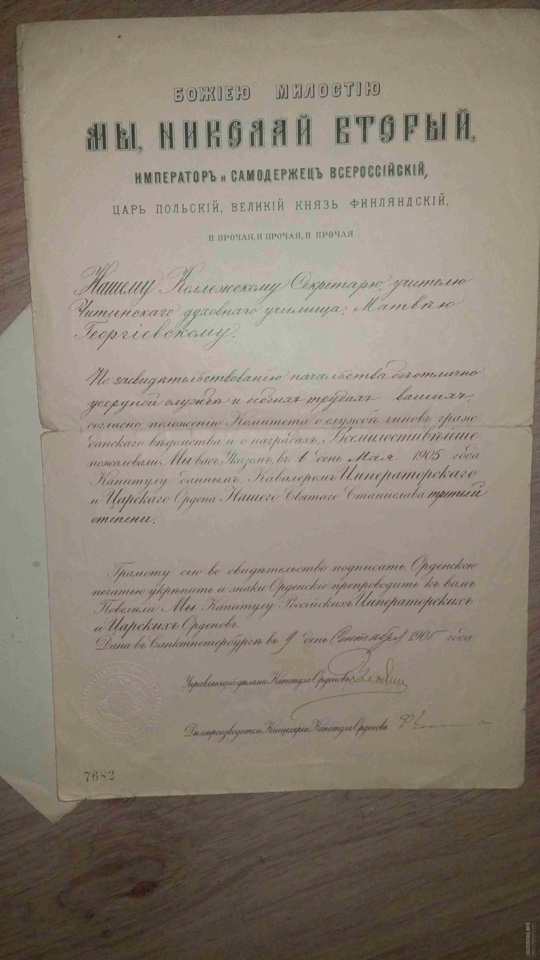 БОЖІЕЮ МИЛОСТІЮ
МЫ, НИКОЛАЙ ВТОРЫЙ,
ИМПЕРАТОРЪ и САМОДЕРЖЕЦЪ ВСЕРОССІЙСКІЙ,
ЦАРЬ ПОЛЬСКІЙ, ВЕЛИКІЙ КНЯЗЬ ФИНЛЯНДСКІЙ,
И ПРОЧАЯ, И ПРОЧАЯ, И ПРОЧАЯ
Нашему Коллежскому Секретарю, учителю
Читинскаго духовнаго училища, Матвѣю
Георгіевскому.
По засвидѣтельствованію начальства объ отлично
усердной службѣ и особыхъ трудахъ вашихъ,
согласно положенію Комитета о службѣ чиновъ граж
данскаго вѣдомства и о наградахъ, Всемилостивѣйше
пожаловали Мы васъ Указомъ, въ 6 день Мая 1905 года
Капитулу даннымъ, Кавалеромъ Императорскаго
и Царскаго Ордена Нашего Святаго Станислава третьей
степени.
Грамоту сію во свидѣтельство подписать, Орденскою
печатью укрѣпить и знаки Орденскіе препроводить къ вамъ
Повелѣли Мы Капитулу Россійскихъ Императорскихъ
и Царскихъ Орденовъ.
Дана въ Санктпетербургѣ въ 9 день Сентября 1905 года
Управляющій дѣлами Капитула Орденовъ
Дѣлопроизводитель Канцеляріи Капитула Орденовъ
7682